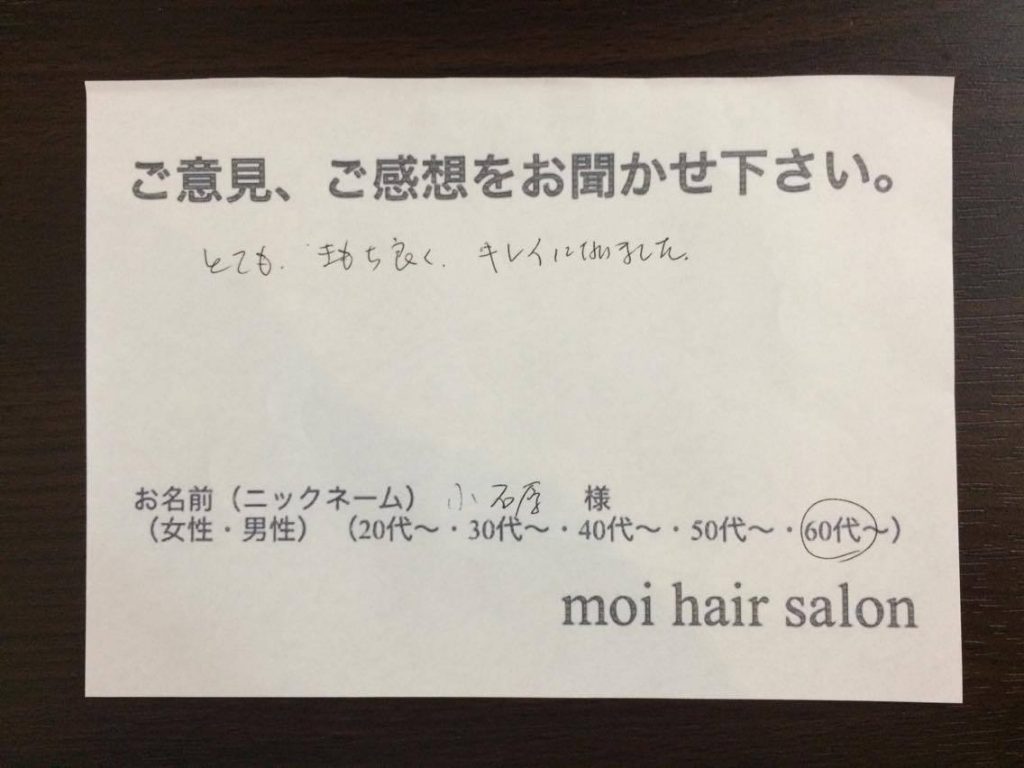 ご意見、ご感想をお聞かせ下さい。
とても、気もち良く、キレイになりました。
お名前（ニックネーム） 小石原 様
（女性・男性）（20代～・30代～・40代～・50代～・60代～）
moi hair salon